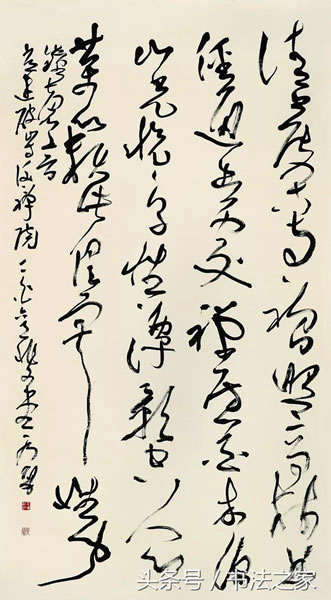 清晨入古寺初日照高林
径通幽处禅房花木深
山光悦鸟性潭影空人心
万籁此俱寂
钟磬音
常建破山寺后禅院
头条号 / 书法之家